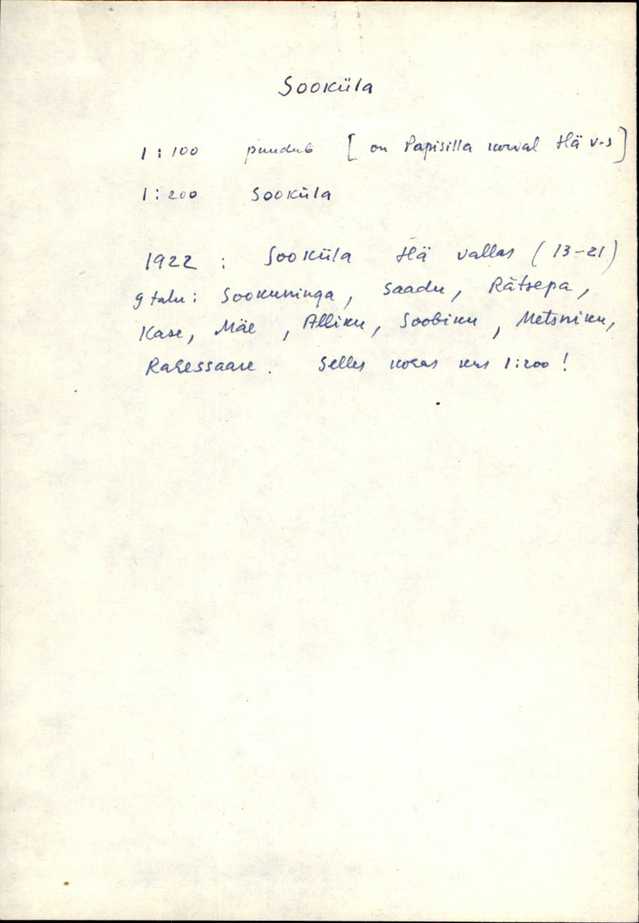 Sooküla
1:100 puudub [on Papisilla korval Hä v-s]
1:200 Sooküla
1922 : Sooküla Hä vallas (13-21)
9 talu: Sookuninga, Saadu, Rätsepa,
Kase, Mäe, Alliku, Soobiku, Metsniku,
Selles kohas kus 1:200!